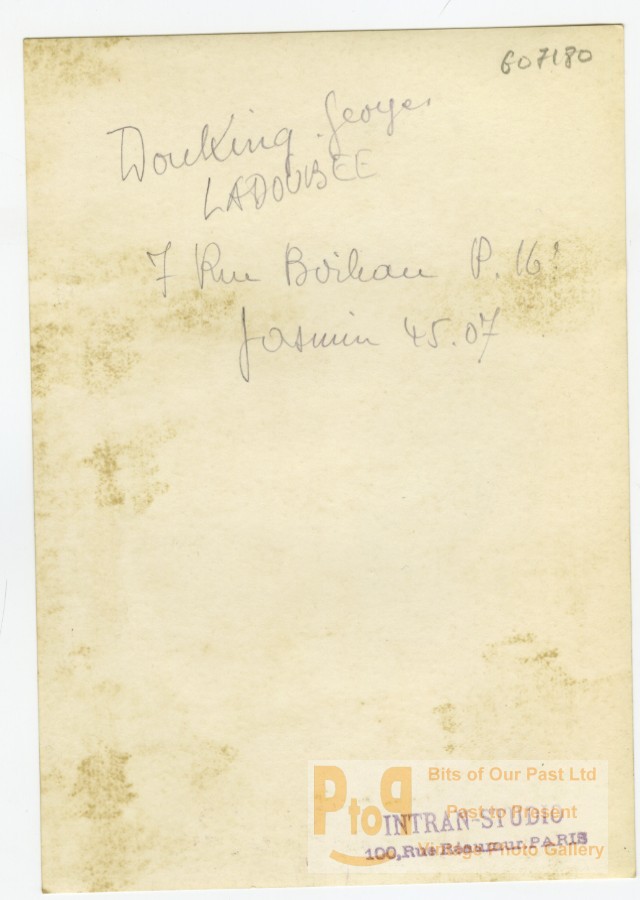 607180
Douking Georges
LADOUBEE
7 Rue Boileau P. 16e
Jasmin 45.07
PtoP
Bits of Our Past Ltd
Past to Present
Vintage Photo Gallery
INTRAN-STUDIO
100, Rue Réaumur, PARIS